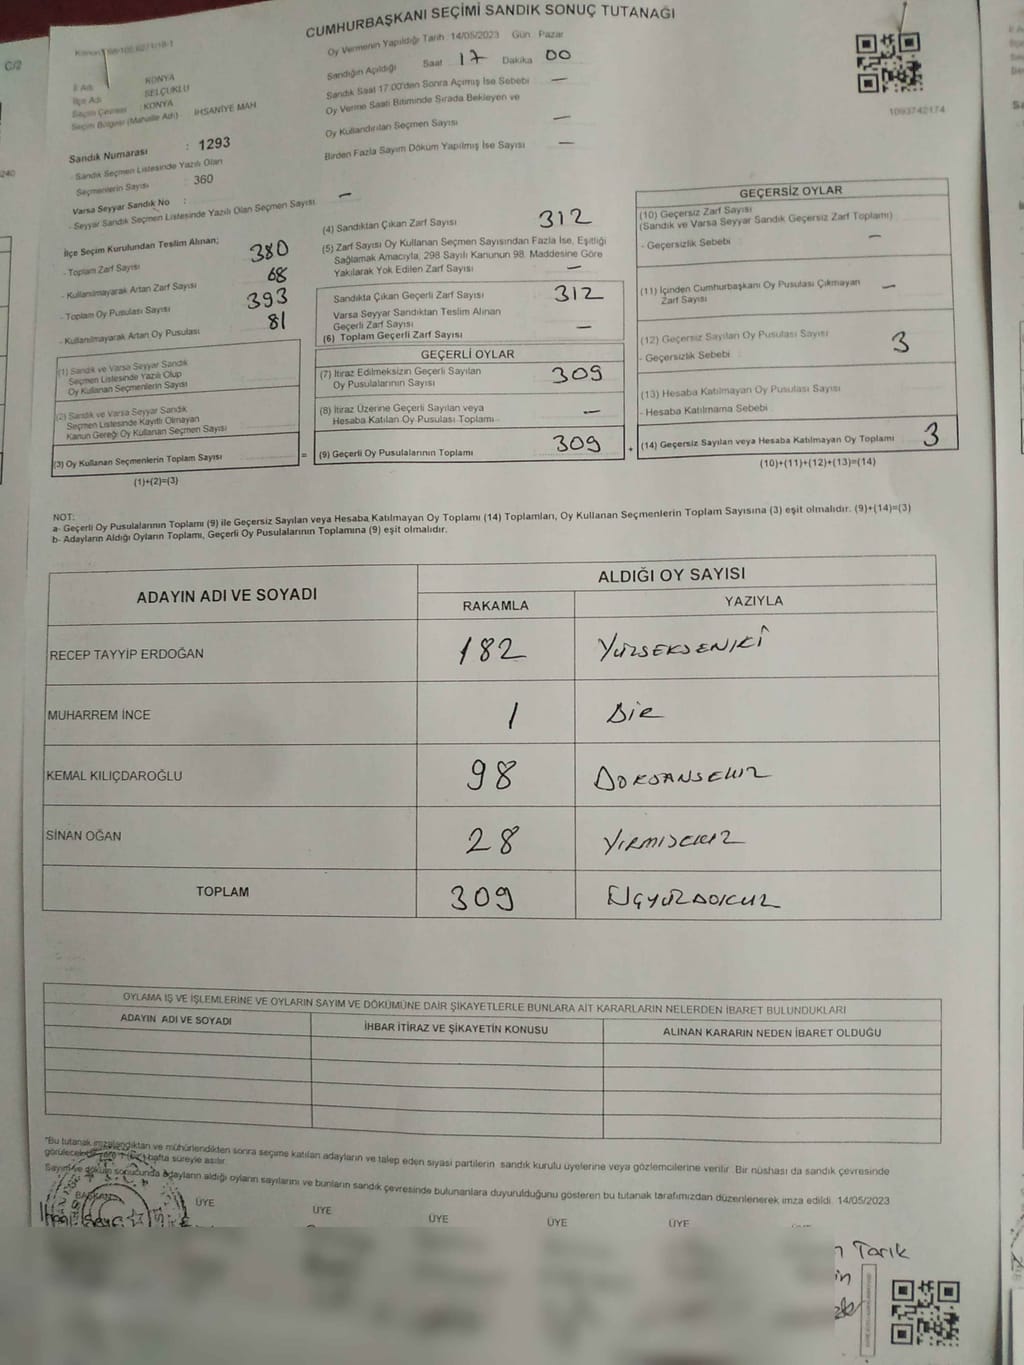 CUMHURBAŞKANI SEÇİMİ SANDIK SONUÇ TUTANAĞI
C/2
Oy Vermenin Yapıldığı Tarih 14/05/2023 Gün Pazar
Sandığın Açıldığı Saat 17 Dakika 00
Sandık Saat 17.00'den Sonra Açımış İse Sebebi —
Oy Verme Saati Bitiminde Sırada Bekleyen ve
Oy Kullandırılan Seçmen Sayısı —
Birden Fazla Sayım Döküm Yapılmış İse Sayısı —
1093742174
İl Adı KONYA
İlçe Adı SELÇUKLU
Seçim Çevresi : KONYA
Seçim Bölgesi (Mahalle Adı) İHSANİYE MAH
Sandık Numarası : 1293
- Sandık Seçmen Listesinde Yazılı Olan
Seçmenlerin Sayısı : 360
Varsa Seyyar Sandık No :
- Seyyar Sandık Seçmen Listesinde Yazılı Olan Seçmen Sayısı —
İlçe Seçim Kurulundan Teslim Alınan;
- Toplam Zarf Sayısı 380
- Kullanılmayarak Artan Zarf Sayısı 68
- Toplam Oy Pusulası Sayısı 393
- Kullanılmayarak Artan Oy Pusulası 81
(1) Sandık ve Varsa Seyyar Sandık
Seçmen Listesinde Yazılı Olup
Oy Kullanan Seçmenlerin Sayısı
(2) Sandık ve Varsa Seyyar Sandık
Seçmen Listesinde Kayıtlı Olmayan
Kanun Gereği Oy Kullanan Seçmen Sayısı
(3) Oy Kullanan Seçmenlerin Toplam Sayısı
(1)+(2)=(3)
=
(4) Sandıktan Çıkan Zarf Sayısı 312
(5) Zarf Sayısı Oy Kullanan Seçmen Sayısından Fazla İse, Eşitliği
Sağlamak Amacıyla, 298 Sayılı Kanunun 98. Maddesine Göre
Yakılarak Yok Edilen Zarf Sayısı —
Sandıkta Çıkan Geçerli Zarf Sayısı 312
Varsa Seyyar Sandıktan Teslim Alınan
Geçerli Zarf Sayısı —
(6) Toplam Geçerli Zarf Sayısı
GEÇERLİ OYLAR
(7) İtiraz Edilmeksizin Geçerli Sayılan
Oy Pusulalarının Sayısı 309
(8) İtiraz Üzerine Geçerli Sayılan veya
Hesaba Katılan Oy Pusulası Toplamı —
(9) Geçerli Oy Pusulalarının Toplamı 309
+
GEÇERSİZ OYLAR
(10) Geçersiz Zarf Sayısı
(Sandık ve Varsa Seyyar Sandık Geçersiz Zarf Toplamı)
- Geçersizlik Sebebi —
(11) İçinden Cumhurbaşkanı Oy Pusulası Çıkmayan
Zarf Sayısı —
(12) Geçersiz Sayılan Oy Pusulası Sayısı 3
- Geçersizlik Sebebi
(13) Hesaba Katılmayan Oy Pusulası Sayısı
- Hesaba Katılmama Sebebi
(14) Geçersiz Sayılan veya Hesaba Katılmayan Oy Toplamı 3
(10)+(11)+(12)+(13)=(14)
NOT:
a- Geçerli Oy Pusulalarının Toplamı (9) ile Geçersiz Sayılan veya Hesaba Katılmayan Oy Toplamı (14) Toplamları, Oy Kullanan Seçmenlerin Toplam Sayısına (3) eşit olmalıdır. (9)+(14)=(3)
b- Adayların Aldığı Oyların Toplamı, Geçerli Oy Pusulalarının Toplamına (9) eşit olmalıdır.
ADAYIN ADI VE SOYADI
ALDIĞI OY SAYISI
RAKAMLA YAZIYLA
RECEP TAYYİP ERDOĞAN 182 YÜZSEKSENİKİ
MUHARREM İNCE 1 BİR
KEMAL KILIÇDAROĞLU 98 DOKSANSEKİZ
SİNAN OĞAN 28 YİRMİSEKİZ
TOPLAM 309 ÜÇYÜZDOKUZ
OYLAMA İŞ VE İŞLEMLERİNE VE OYLARIN SAYIM VE DÖKÜMÜNE DAİR ŞİKAYETLERLE BUNLARA AİT KARARLARIN NELERDEN İBARET BULUNDUKLARI
ADAYIN ADI VE SOYADI İHBAR İTİRAZ VE ŞİKAYETİN KONUSU ALINAN KARARIN NEDEN İBARET OLDUĞU
*Bu tutanak imzalandıktan ve mühürlendikten sonra seçime katılan adayların ve talep eden siyasi partilerin sandık kurulu üyelerine veya gözlemcilerine verilir. Bir nüshası da sandık çevresinde
hafta süreyle asılır.
Sayım ve döküm sonucunda adayların aldığı oyların sayılarını ve bunların sandık çevresinde bulunanlara duyurulduğunu gösteren bu tutanak tarafımızdan düzenlenerek imza edildi. 14/05/2023
BAŞKAN ÜYE ÜYE ÜYE ÜYE ÜYE
Tarık